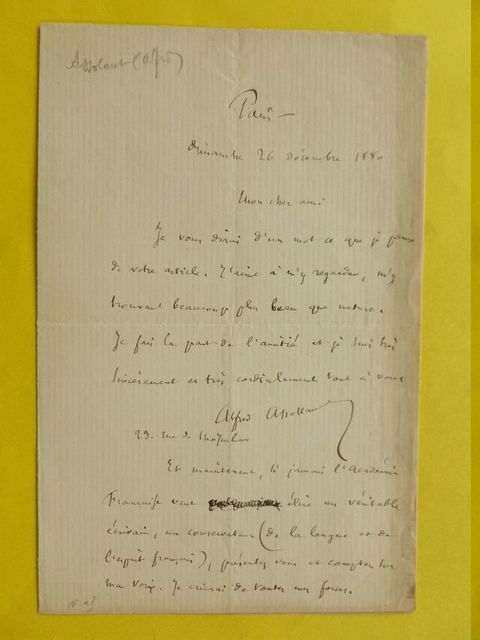 Assolant (Alfred)
Paris —
Dimanche 26 décembre 1880
Mon cher ami
Je vous dirai d'un mot ce que je pense
de votre article. J'aime à m'y regarder, m'y
trouvant beaucoup plus beau que nature.
Je fais la part de l'amitié et je suis très
sincèrement et très cordialement tout à vous
Alfred Assollant
23. rue de
Et maintenant, si jamais l'Académie
Française veut élire un véritable
écrivain, un conservateur (de la langue et de
l'esprit français), présentez vous et comptez sur
ma voix. Je crierai de toutes mes forces.